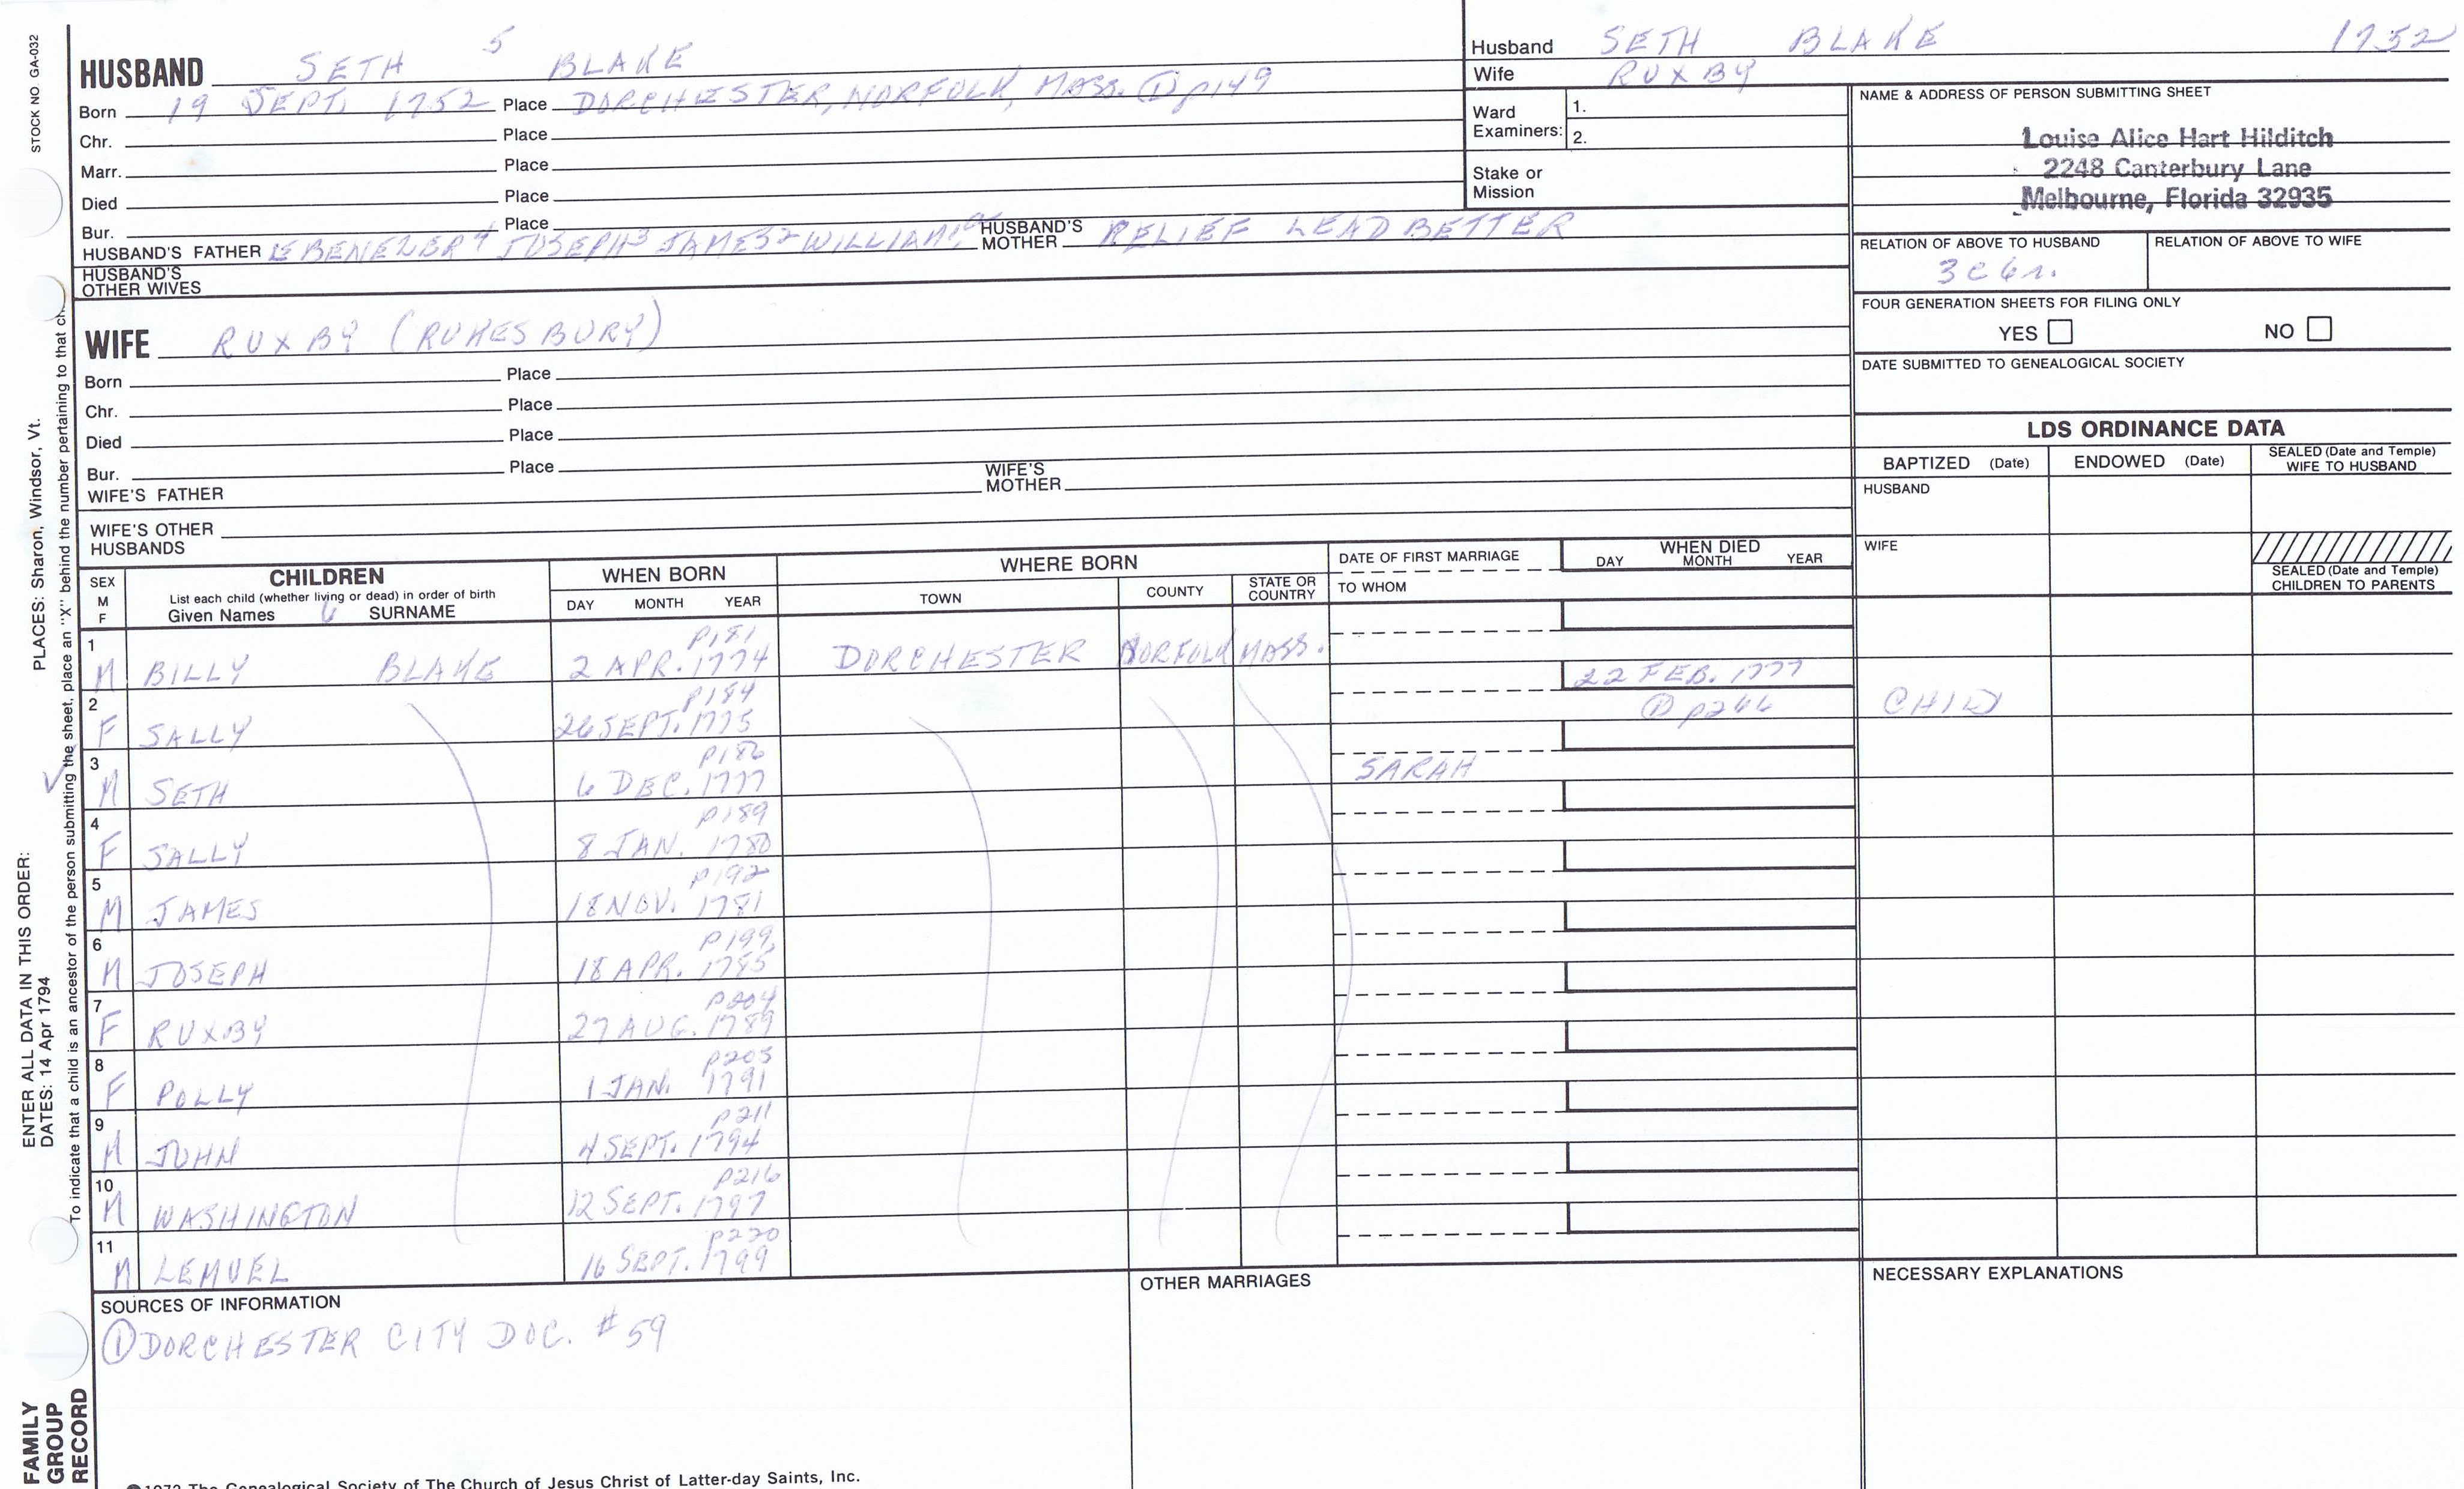 STOCK NO GA-032
HUSBAND SETH 5 BLAKE
Born 19 SEPT. 1752 Place DORCHESTER, NORFOLK, MASS. ① p149
Chr. Place
Marr. Place
Died Place
Bur. Place
HUSBAND'S FATHER EBENEZER4 JOSEPH3 JAMES2 WILLIAM1 HUSBAND'S MOTHER RELIEF LEADBETTER
HUSBAND'S OTHER WIVES
WIFE RUXBY (RUKESBURY)
Born Place
Chr. Place
Died Place
Bur. Place
WIFE'S FATHER WIFE'S MOTHER
WIFE'S OTHER HUSBANDS
Husband SETH BLAKE 1752
Wife RUXBY
Ward Examiners: 1.
2.
Stake or Mission
NAME & ADDRESS OF PERSON SUBMITTING SHEET
Louise Alice Hart Hilditch
2248 Canterbury Lane
Melbourne, Florida 32935
RELATION OF ABOVE TO HUSBAND RELATION OF ABOVE TO WIFE
3c6r.
FOUR GENERATION SHEETS FOR FILING ONLY
YES NO
DATE SUBMITTED TO GENEALOGICAL SOCIETY
LDS ORDINANCE DATA
BAPTIZED (Date) ENDOWED (Date) SEALED (Date and Temple) WIFE TO HUSBAND
HUSBAND
WIFE
SEALED (Date and Temple) CHILDREN TO PARENTS
SEX M F CHILDREN WHEN BORN WHERE BORN DATE OF FIRST MARRIAGE WHEN DIED
List each child (whether living or dead) in order of birth
Given Names 6 SURNAME DAY MONTH YEAR TOWN COUNTY STATE OR COUNTRY TO WHOM DAY MONTH YEAR
1 M BILLY BLAKE p181 2 APR. 1774 DORCHESTER NORFOLK MASS.
2 F SALLY p184 26 SEPT. 1775 22 FEB. 1777 ① p266 CHILD
3 M SETH p186 6 DEC. 1777 SARAH
4 F SALLY p189 8 JAN. 1780
5 M JAMES p192 18 NOV. 1781
6 M JOSEPH p199 18 APR. 1785
7 F RUXBY p204 27 AUG. 1789
8 F POLLY p205 1 JAN. 1791
9 M JOHN p211 4 SEPT. 1794
10 M WASHINGTON p216 12 SEPT. 1797
11 M LEMUEL p220 16 SEPT. 1799
SOURCES OF INFORMATION OTHER MARRIAGES NECESSARY EXPLANATIONS
① DORCHESTER CITY DOC. #59
1972 The Genealogical Society of The Church of Jesus Christ of Latter-day Saints, Inc.
ENTER ALL DATA IN THIS ORDER: PLACES: Sharon, Windsor, Vt.
DATES: 14 Apr 1794
To indicate that a child is an ancestor of the person submitting the sheet, place an "X" behind the number pertaining to that
FAMILY GROUP RECORD